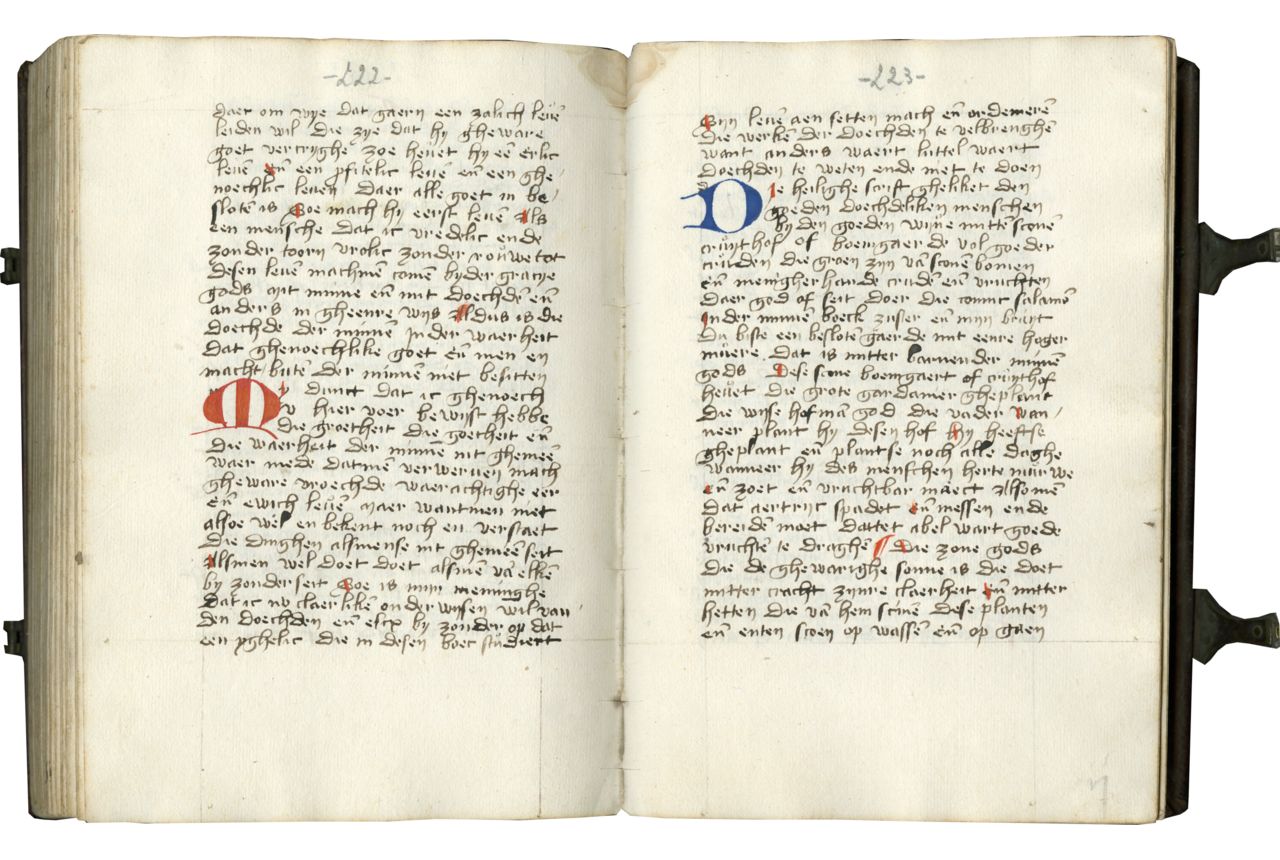 -222-
daer om wye dat gaern een zalich leuē
leiden wil die zye dat hy gheware
goet vercryghe zoe heuet hy eē erlic
leuē eñ een pfitelic leuē eñ een ghe-
noechlic leuen daer alle goet in be-
slotē is Soe mach hy eerst leuē Als
een mēsche dat ic vredelic ende
zonder toorn vrolic zonder rouwe tot
desen leuē machmē comē byder gracye
gods mit minne eñ mit doechdē eñ
anders in gheenre wijs Aldus is die
doechde der minnē in der waerheit
dat ghenoechlike goet eñ men en
macht butē der minnē niet besitten
My dunct dat ic ghenoech
v hier voer bewijst hebbe
die groetheit die goetheit eñ
die waerheit der minnē int ghemeē
waer mede datmē verweruen mach
gheware vroechde waerachtighe eer
eñ ewich leuē Maer wantmen niet
alsoe wel en bekent noch en verstaet
die dinghen alsmense int ghemeē seit
Alsmen wel doet doet alsmē vā elkē
by zonder seit Soe is mijn meninghe
dat ic nv claerlikē onderwysen wil van
den doechden eñ elcx by zonder op dat
een yghelic die in desen boec studiert
-223-
Sijn leuē aen setten mach eñ ordenierē
die werkē der doechden te volbrenghē
want anders waert luttel waert
doechden te weten ende niet te doen
Die heilighe scrift ghelijket den
goeden doechdeliken menschen
by den goeden wyne mittē sconē
cruythof of boemgaerde vol goeder
cruden die groen zijn vā sconē bomen
eñ menigherhande crudē eñ vruchten
daer god of seit doer die coninc salamō
In der minnē boeck zuster eñ mijn bruyt
du biste een beslotē gaerde mit eenre hoger
muere dat is mitter barnender minnē
gods Dese scone boemgaert of cruythof
heuet die grote gardenier gheplant
die wijse hofmā god die vader Wan-
neer plant hy desen hof Hy heeftse
gheplant eñ plantse noch alle daghe
wanneer hy des menschen herte murwe
eñ zoet eñ vruchtbar maect Alsomē
dat aertrijc spadet eñ messen ende
bereiden moet dattet abel wart goede
vruchtē te draghē Die zone gods
die de ghewarighe sonne is die doet
mitter cracht zijnre claerheit eñ mitter
hetten die vā hem scinē dese planten
eñ enten scoen op wassē eñ op gaen